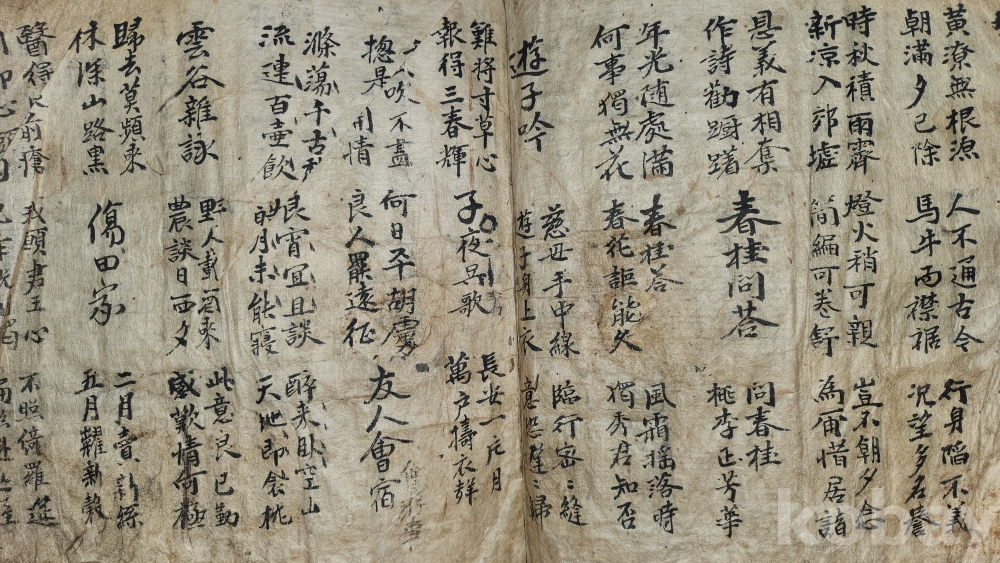 黃潦無根源
朝滿夕已除
人不通古今
馬牛而襟裾
行身陷不義
況望多名譽
時秋積雨霽
新凉入郊墟
燈火稍可親
簡編可卷舒
豈不朝夕念
為爾惜居諸
恩義有相奪
作詩勸躊躇
春桂問荅
問春桂
桃李正芳華
年光随處滿
何事獨無花
春桂荅
春花詎能久
風霜揺落時
獨秀君知否
遊子吟
慈母手中線
遊子身上衣
臨行密〻縫
意恐遲〻歸
難将寸草心
報得三春輝
子夜吳歌
長安一片月
萬戶擣衣聲
吹不盡
摠是 情
何日平胡虜
良人罷遠征
友人會宿
滌蕩千古
流連百壺飮
良宵宜且談
月未能寢
醉来臥空山
天地即衾枕
雲谷雜詠
野人載酒来
農談日西夕
此意良已勤
感歎情何極
歸去莫頻来
林深山路黑
傷田家
二月賣新絲
五月糶新穀
醫得眼前瘡
心頭肉
我願君王心
不照綺羅筵